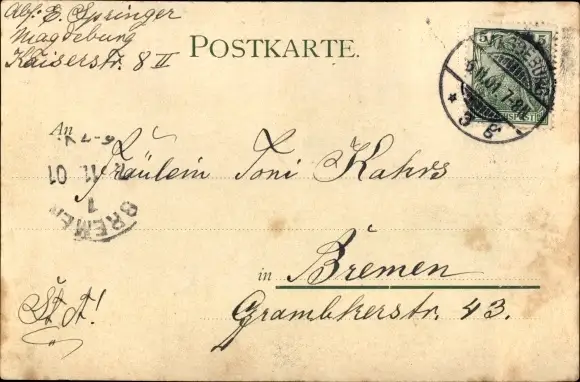 Abs: E. Springer
Magdeburg
Kaiserstr. 8 II
POSTKARTE.
5 5
MAGDEBURG
6.11.01. 7-8N.
* 3 g *
An
Fräulein Toni Kahrs
BREMEN
1
11 01
6-7 V.
in Bremen
Grambkerstr. 43.